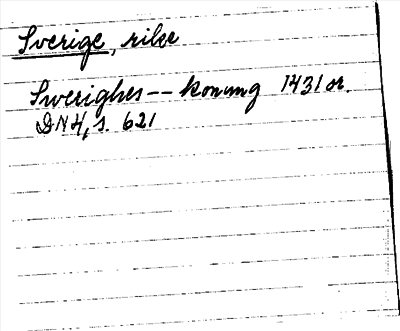 Sverige, rike
Swerighes -- konung 1431 or.
DN 4, s. 621